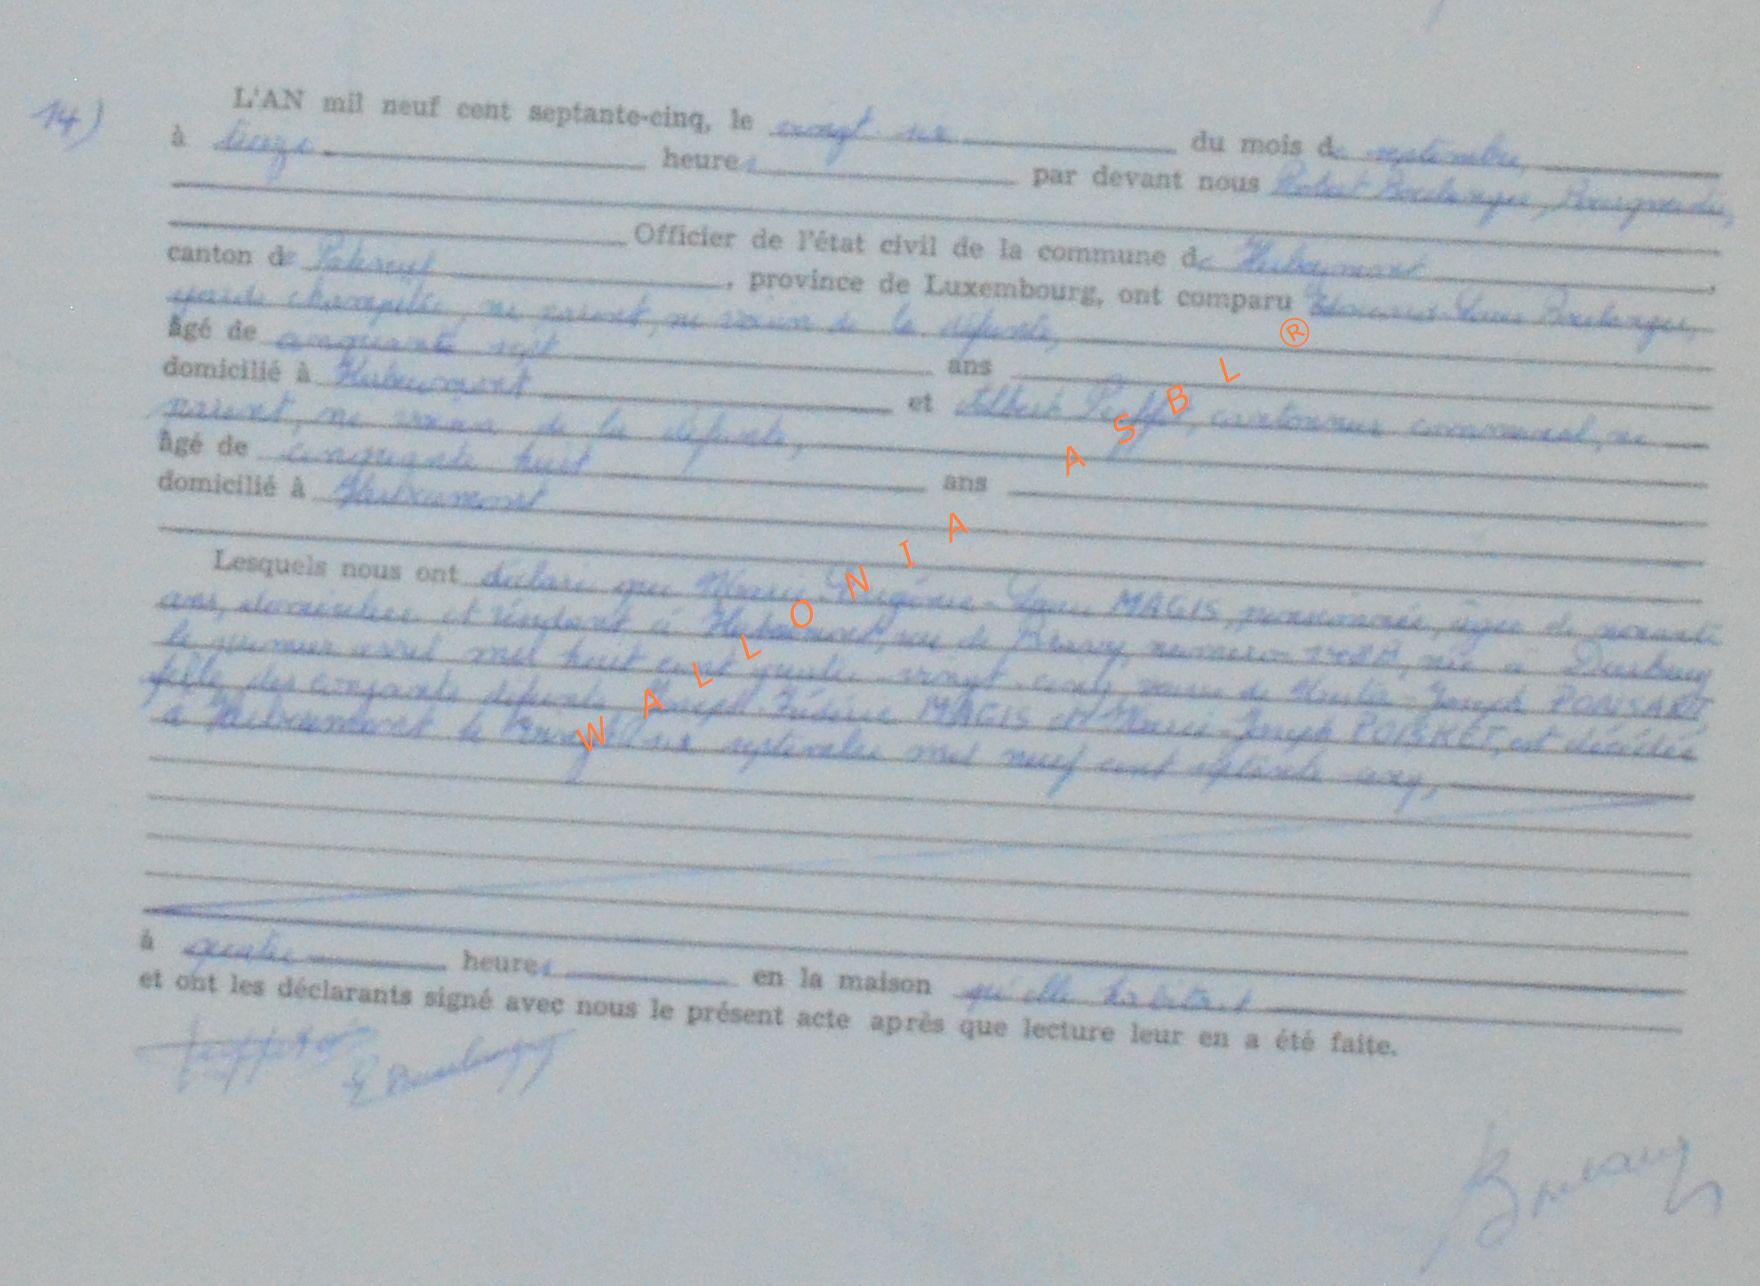 14)
L'AN mil neuf cent septante-cinq, le vingt six du mois de septembre,
à heures par devant nous Robert Boulanger, Bourgmestre,
Officier de l'état civil de la commune de Herbeumont
canton de Paliseul, province de Luxembourg, ont comparu Edouard Boulanger,
garde champêtre, ni parent, ni voisin de la défunte,
âgé de cinquante sept ans
domicilié à Herbeumont et Albert, cantonnier communal, ni
parent, ni voisin de la défunte,
âgé de cinquante huit ans
domicilié à Herbeumont
Lesquels nous ont déclaré que Marie MAGIS, pensionnée, âgée de nonante
ans, domiciliée et résidant à Herbeumont, rue de numéro née à
le premier avril mil huit cent quatre vingt cinq, veuve de Joseph PONSART,
fille des conjoints défunts Joseph MAGIS et Marie-Joseph est décédée
à Herbeumont le vingt six septembre mil neuf cent septante cinq,
à quatre heures en la maison qu'elle habitait
et ont les déclarants signé avec nous le présent acte après que lecture leur en a été faite.
E Boulanger
WALLONIA ASBL ®